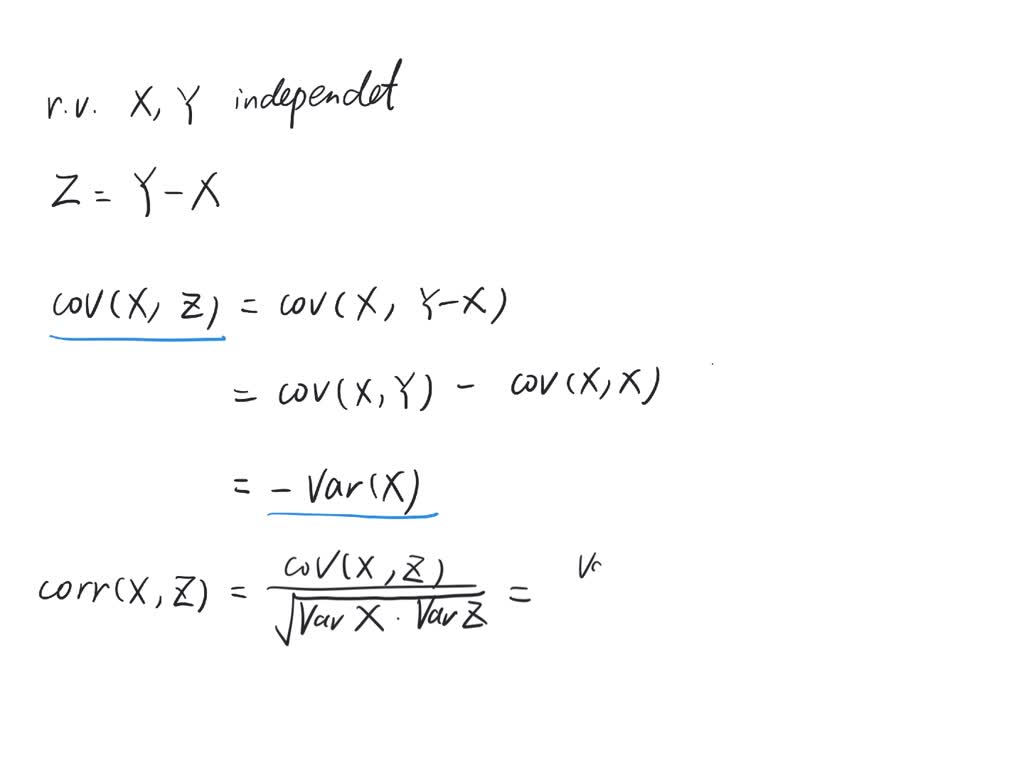 r.v. X, Y independet
Z = Y - X
cov(X, Z) = cov(X, Y-X)
= cov(X, Y) - cov(X, X)
= - Var(X)
corr(X, Z) = cov(X, Z) / √(Var X · Var Z) = Va